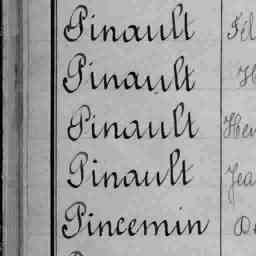 Pinault Fél
Pinault H
Pinault Hen
Pinault Jea
Pincemin